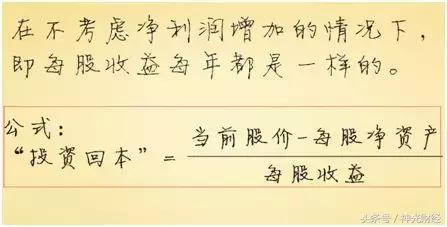 在不考虑净利润增加的情况下，
即每股收益每年都是一样的。
公式：
“投资回本”=
当前股价-每股净资产
每股收益
头条号/神光财经